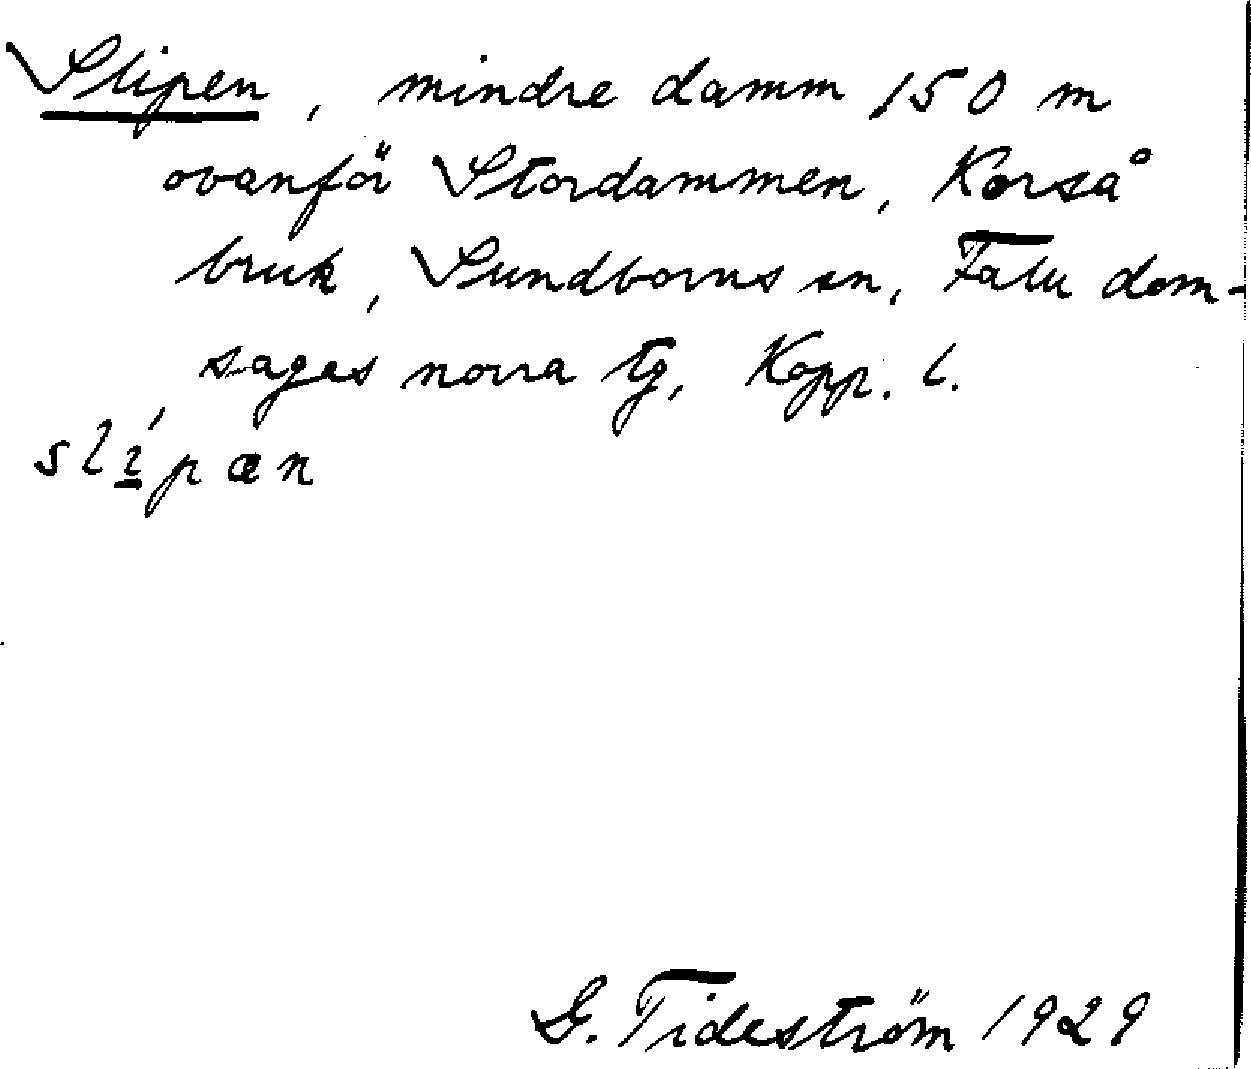 Slipen, mindre damm 150 m
ovanför Stordammen, Korså
bruk, Sundborns sn, Falu dom-
sagas norra tg, Kopp. l.
slípæn
G. Tideström 1929